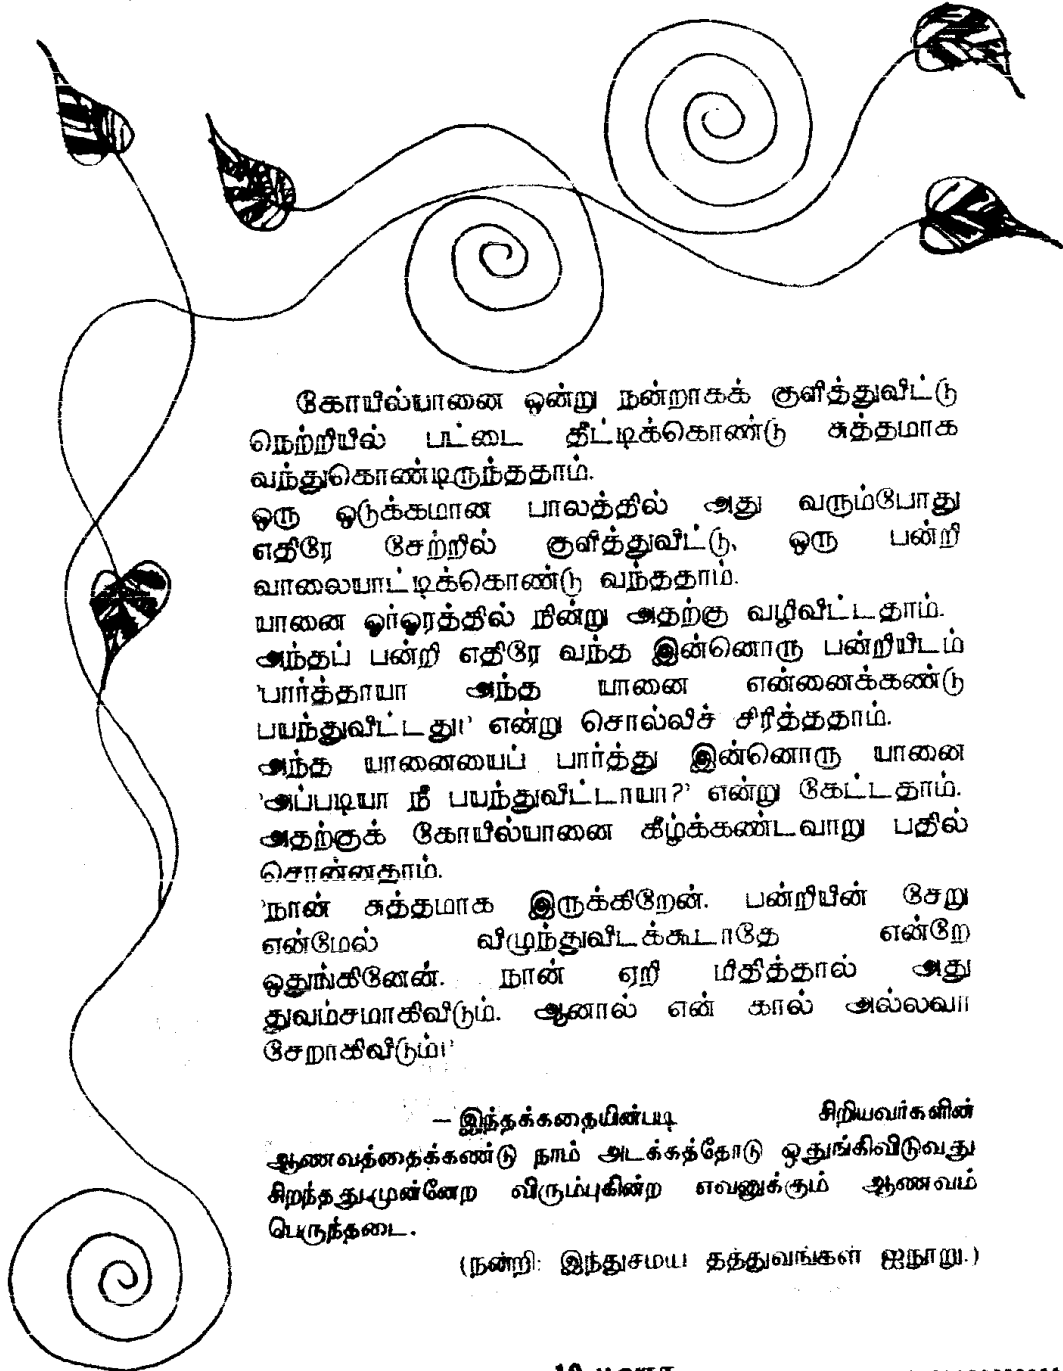 கோயில்யானை ஒன்று நன்றாகக் குளித்துவிட்டு
நெற்றியில் பட்டை தீட்டிக்கொண்டு சுத்தமாக
வந்துகொண்டிருந்ததாம்.
ஒரு ஒடுக்கமான பாலத்தில் அது வரும்போது
எதிரே சேற்றில் குளித்துவிட்டு, ஒரு பன்றி
வாலையாட்டிக்கொண்டு வந்ததாம்.
யானை ஓர்ஓரத்தில் நின்று அதற்கு வழிவிட்டதாம்.
அந்தப் பன்றி எதிரே வந்த இன்னொரு பன்றியிடம்
'பார்த்தாயா அந்த யானை என்னைக்கண்டு
பயந்துவிட்டது!' என்று சொல்லிச் சிரித்ததாம்.
அந்த யானையைப் பார்த்து இன்னொரு யானை
'அப்படியா நீ பயந்துவிட்டாயா?' என்று கேட்டதாம்.
அதற்குக் கோயில்யானை கீழ்க்கண்டவாறு பதில்
சொன்னதாம்.
'நான் சுத்தமாக இருக்கிறேன். பன்றியின் சேறு
என்மேல் விழுந்துவிடக்கூடாதே என்றே
ஒதுங்கினேன். நான் ஏறி மிதித்தால் அது
துவம்சமாகிவிடும். ஆனால் என் கால் அல்லவா
சேறாகிவிடும்!'
– இந்தக்கதையின்படி சிறியவர்களின்
ஆணவத்தைக்கண்டு நாம் அடக்கத்தோடு ஒதுங்கிவிடுவது
சிறந்தது-முன்னேற விரும்புகின்ற எவனுக்கும் ஆணவம்
பெருந்தடை.
(நன்றி: இந்துசமய தத்துவங்கள் ஐநூறு.)